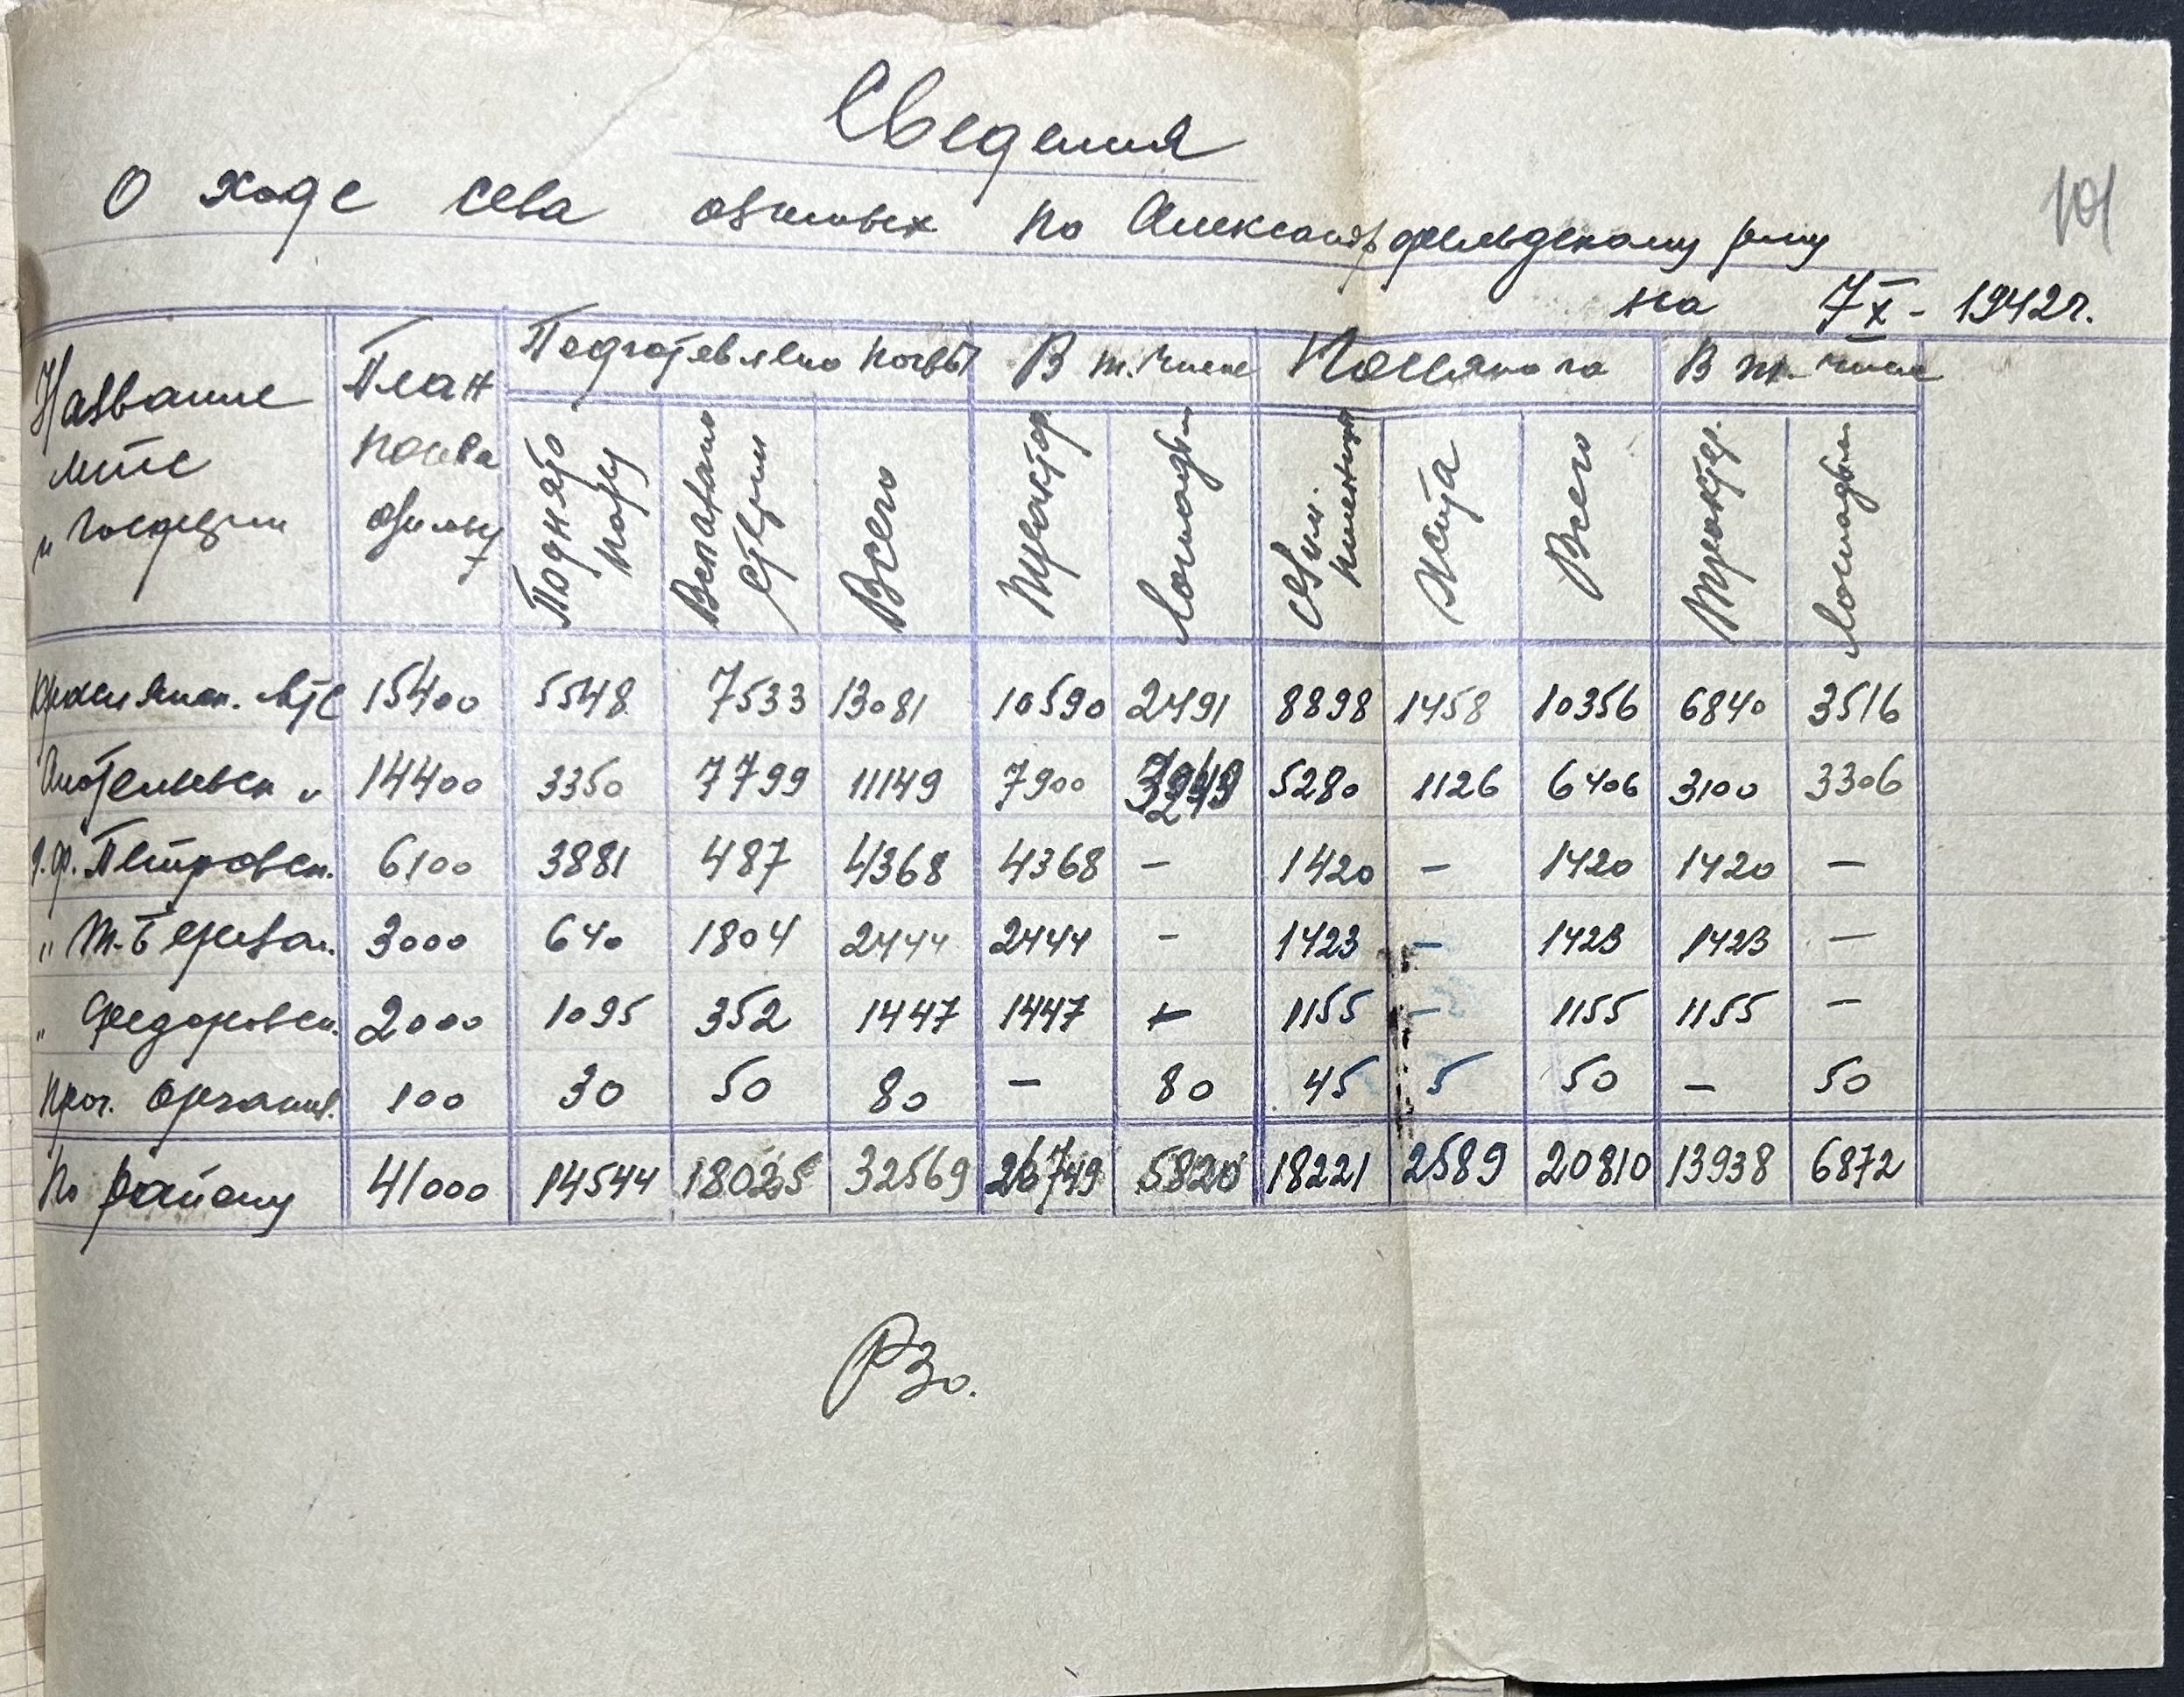 Сведения
О ходе сева озимых по Александрфельдскому р-ну
101
на 7/X - 1942 г.
Название мтс и госфермы | План посева озимых | Подготовлено почвы | В т. числе | Посеяно га | В т. числе
Поднято пару | Вспахано стерни | Всего | Трактор | Лошадьми | Озим. пшеницы | Жита | Всего | Трактор. | Лошадьми
15400 5548 7533 13081 10590 2491 8898 1458 10356 6840 3516
14400 3350 7799 11149 7900 3249 5280 1126 6406 3100 3306
Петровск. 6100 3881 487 4368 4368 – 1420 – 1420 1420 –
" Т-Березан. 3000 640 1804 2444 2444 – 1423 – 1423 1423 –
" Федоровск. 2000 1095 352 1447 1447 – 1155 – 1155 1155 –
Проч. организ. 100 30 50 80 – 80 45 5 50 – 50
По району 41000 14544 18025 32569 26749 5820 18221 2589 20810 13938 6872
РЗО.